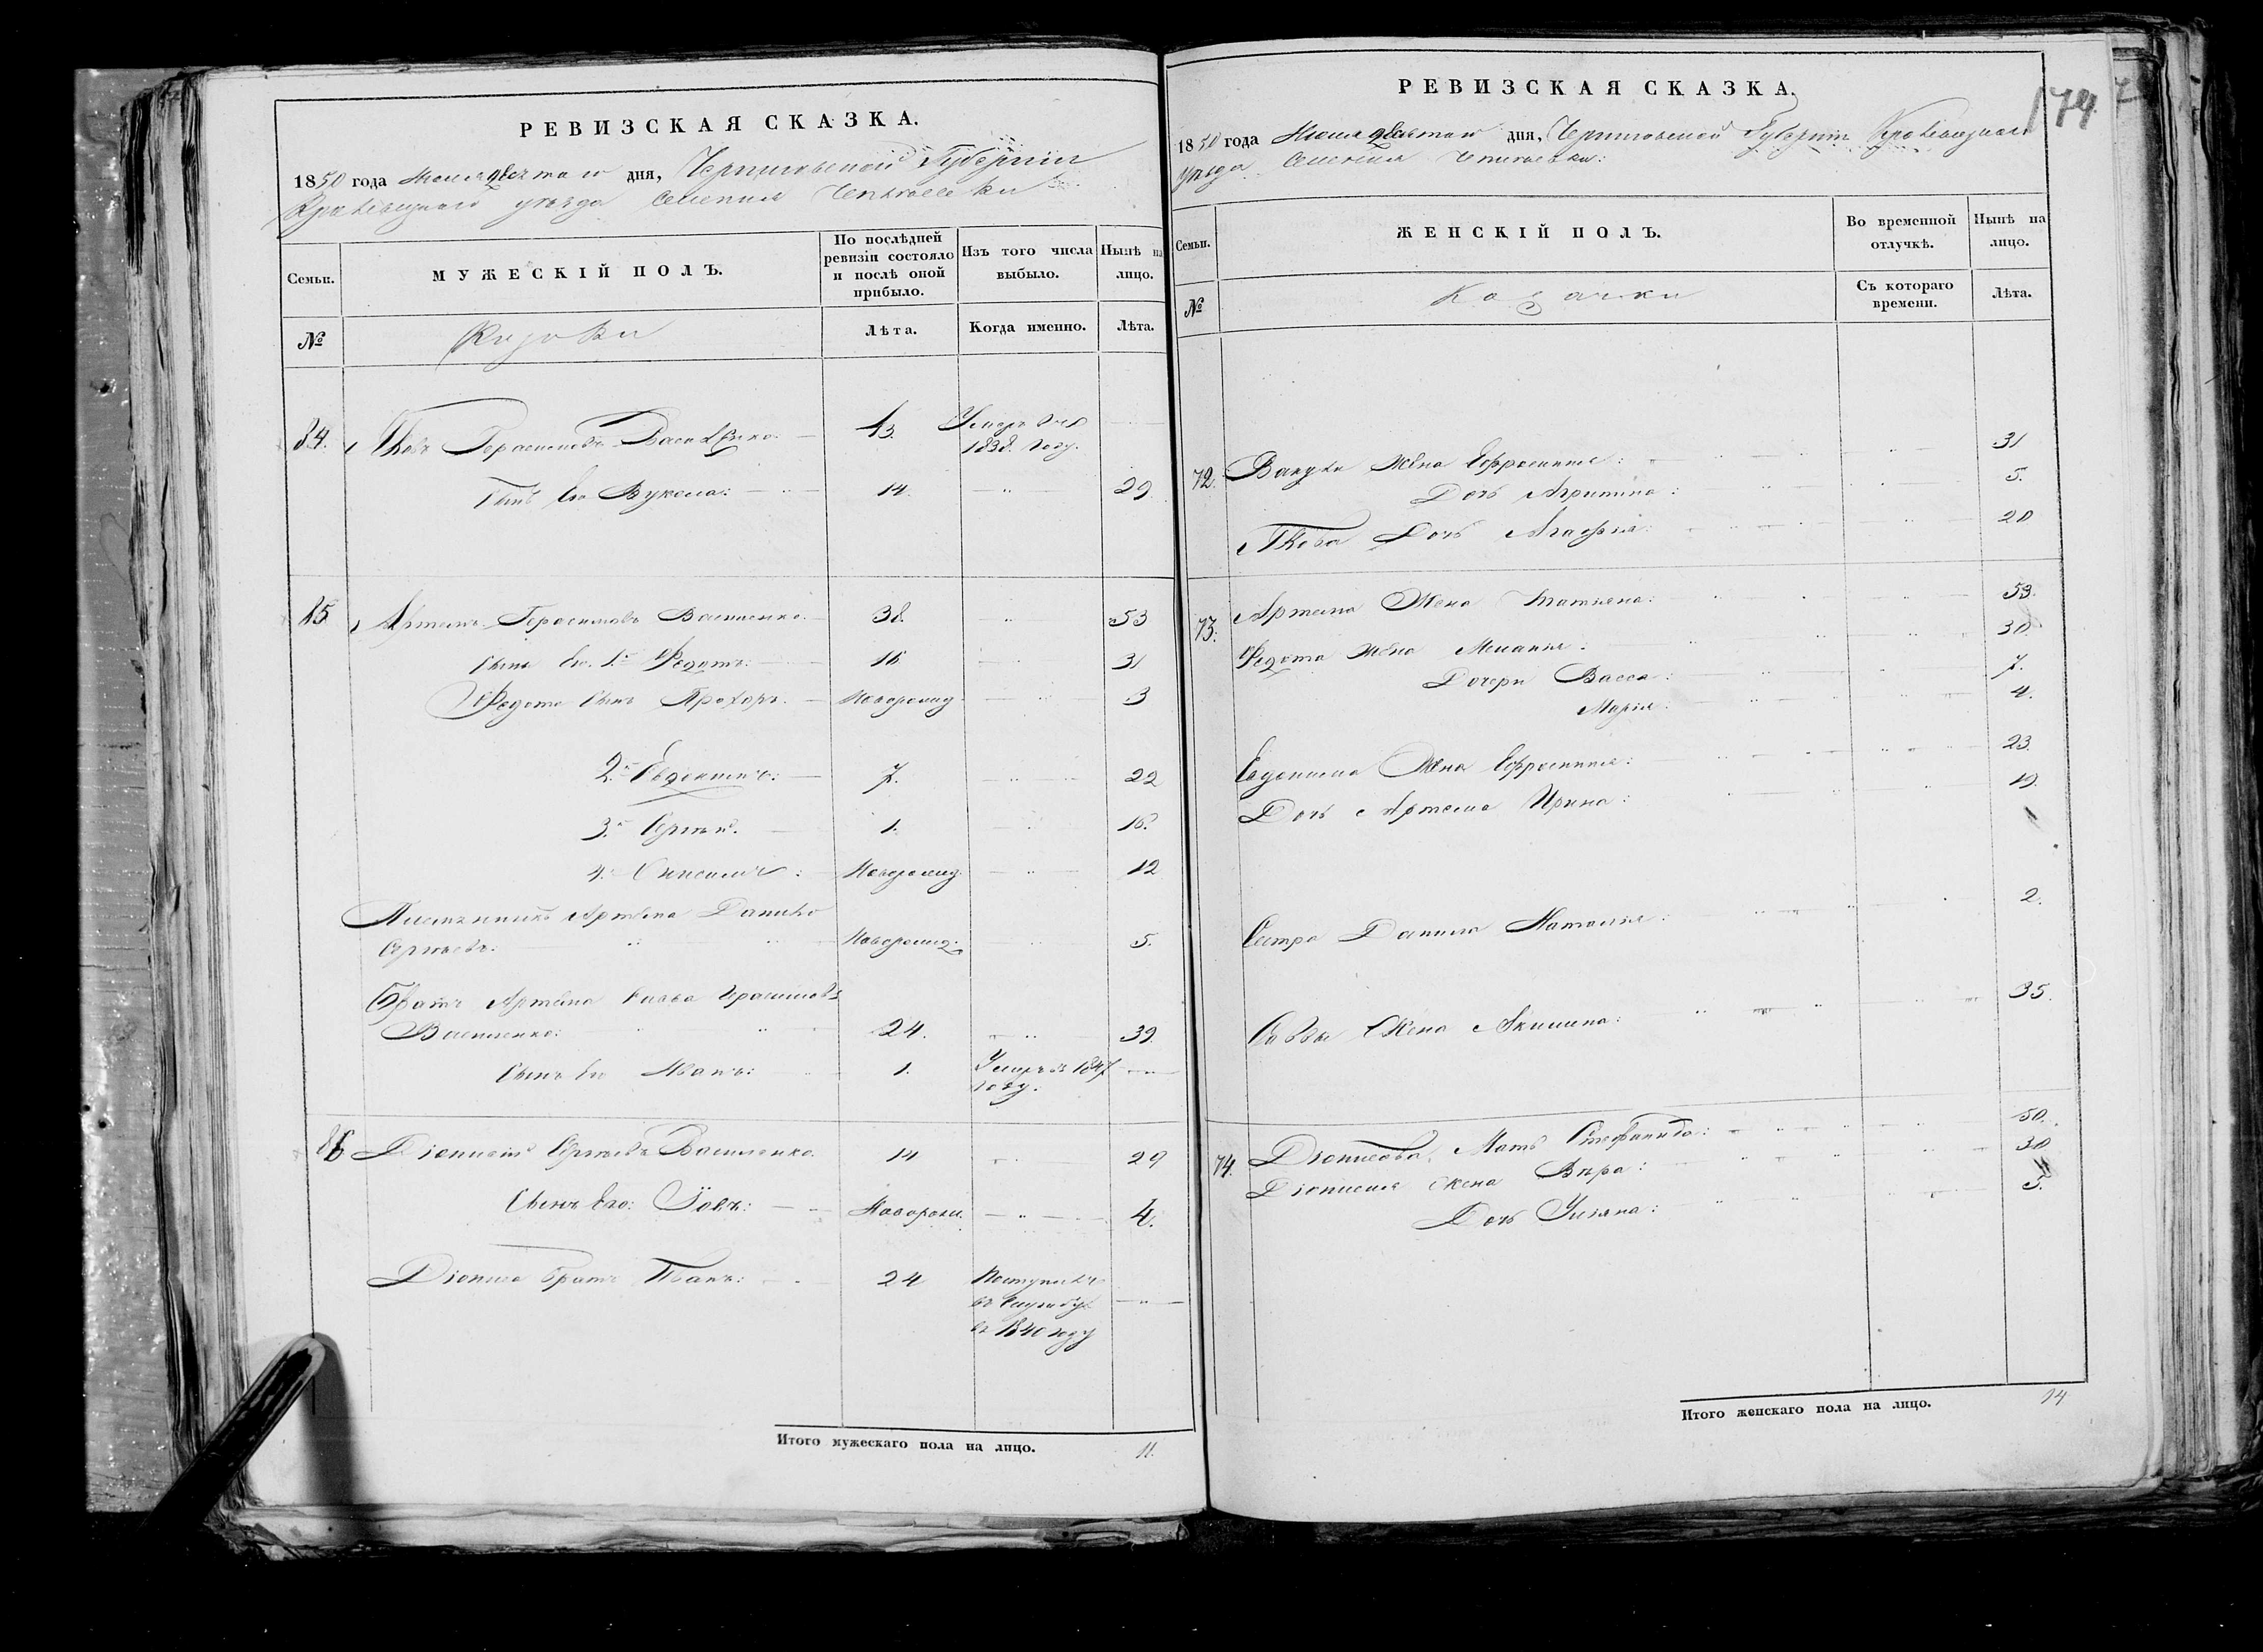 РЕВИЗСКАЯ СКАЗКА.
1850 года дня, Черниговской Губернии
уезда Селения
Семьи.
МУЖЕСКІЙ ПОЛЪ.
По послѣдней ревизіи состояло и послѣ оной прибыло.
Изъ того числа выбыло.
Нынѣ на лицо.
№
Лѣта.
Когда именно.
Лѣта.
84. Яковъ Герасимовъ 43. Умеръ 1838. году.
Сынъ Его Вукола: 14. 29.
85 Артемъ Герасимовъ Василенко. 38. 53
Сынъ Его. 1й Федотъ: 16 31
Федота Сынъ Прохоръ. Новорожд 3
2й Евдокимъ: 7. 22
3й Сергѣй. 1. 16.
4й : Новорожд. 12
Племянникъ Артема Данило
Сергѣевъ. Новорожд. 5.
Братъ Артема Савва Герасимовъ
Василенко: 24. 39.
Сынъ Его Иванъ: 1. Умеръ въ 1847
году.
86 Діонисій Сергѣевъ Василенко. 14 29
Сынъ Его: Іовъ: Новорож. 4.
Діонисія братъ Иванъ: 24 Поступилъ
въ службу
въ 1840 году
Итого мужескаго пола на лицо. 11.
174
РЕВИЗСКАЯ СКАЗКА.
1850 года дня, Черниговской Губернии
уезда Селения
Семьи.
ЖЕНСКІЙ ПОЛЪ.
Во временной отлучкѣ.
Нынѣ на лицо.
№
Козачки
Съ котораго времени.
Лѣта.
72. Вакулы Жена Ефросинія: 31
Дочь Агрипина: 5.
Якова Дочь Агафія: 20
73. Артема Жена Татіяна: 53.
Федота Жена Меланія: 30.
Дочери Васса: 7.
Марія: 4.
Евдокима Жена Ефросинія: 23.
Дочь Артема Ирина: 19.
Сестра Данила Наталія: 2.
Саввы Жена Акилина: 35.
74. Діонисова Мать Стефанида: 50.
Діонисія жена Вѣра: 30
Дочь Уліяна: 5.
Итого женскаго пола на лицо. 14